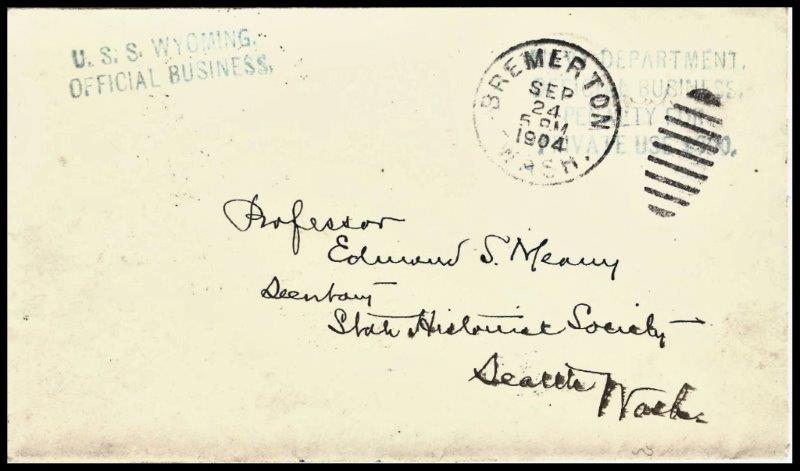 U. S. S. WYOMING.
OFFICIAL BUSINESS.
BREMERTON
SEP
24
5 PM
1904
WASH.
DEPARTMENT.
BUSINESS.
PENALTY FOR
PRIVATE USE $300.
Professor
Edmund S. Meany
Secretary
State Historical Society
Seattle Wash.